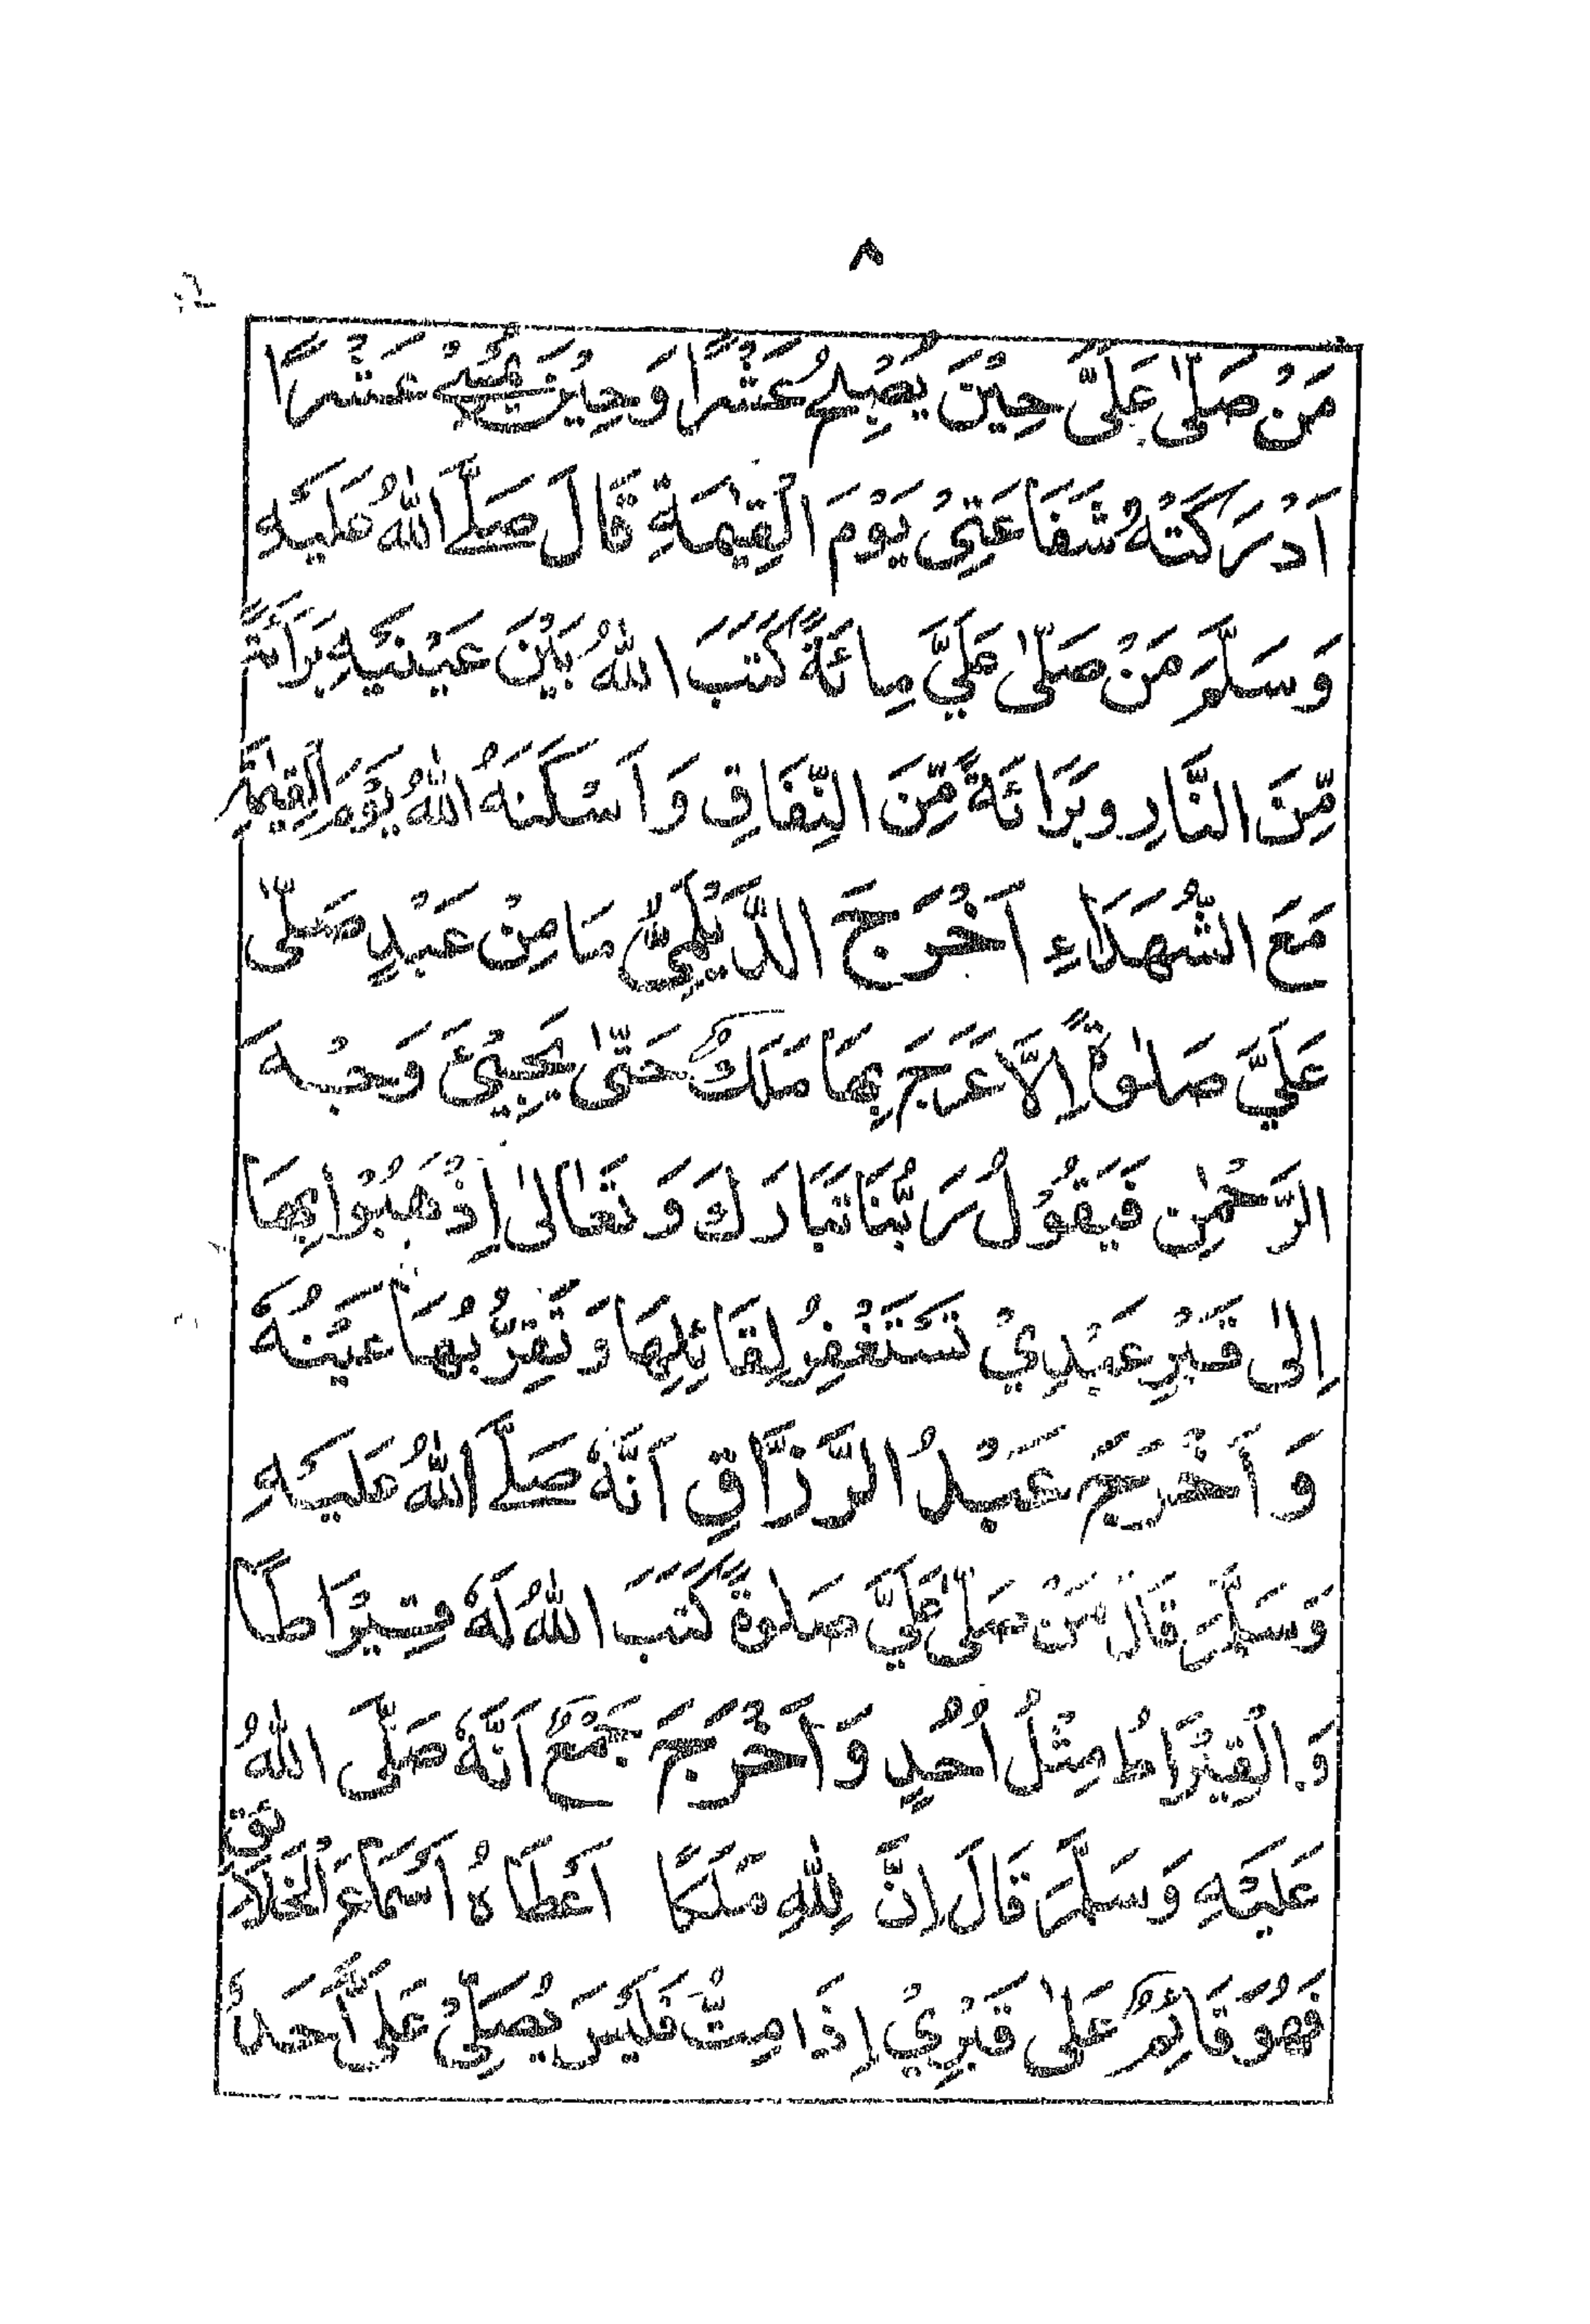 ٨
مَنْ صَلّٰى عَلَيَّ حِيْنَ يُصْبِحُ عَشْرًا وَحِيْنَ يُمْسِيْ عَشْرًا
اَدْرَكَتْهُ شَفَاعَتِيْ يَوْمَ الْقِيٰمَةِ قَالَ صَلَّے اللّٰهُ عَلَيْهِ
وَسَلَّمَ مَنْ صَلّٰى عَلَيَّ مِائَةً كَتَبَ اللّٰهُ بَيْنَ عَيْنَيْهِ بَرَائَةً
مِّنَ النَّارِ وبَرَائَةً مِّنَ النِّفَاقِ وَاَسْكَنَهُ اللّٰهُ يَوْمَ الْقِيٰمَةِ
مَعَ الشُّهَدَاءِ اَخْرَجَ الدَّيْلَمِيُّ مَا مِنْ عَبْدٍ صَلّٰى
عَلَيَّ صَلٰوةً اِلَّا عَرَجَ بِهَا مَلَكٌ حَتّٰى يَجِيْئَ وَجْهَ
الرَّحْمٰنِ فَيَقُوْلُ رَبُّنَا تَبَارَكَ وَتَعَالٰى اِذْهَبُوْا بِهَا
اِلٰى قَبْرِ عَبْدِيْ تَسْتَغْفِرُ لِقَائِلِهَا وَتَقِرُّ بُهَا عَيْنُهٗ
وَاَخْرَجَ عَبْدُ الرَّزَّاقِ اَنَّهٗ صَلَّے اللّٰهُ عَلَيْهِ
وَسَلَّمَ قَالَ مَنْ صَلّٰى عَلَيَّ صَلٰوةً كَتَبَ اللّٰهُ لَهٗ قِيْرَاطًا
وَالْقِيْرَاطُ مِثْلُ اُحُدٍ وَاَخْرَجَ جَمْعٌ اَنَّهٗ صَلَّى اللّٰهُ
عَلَيْهِ وَسَلَّمَ قَالَ اِنَّ لِلّٰهِ مَلَكًا اَعْطَاهُ اَسْمَاءَ الْخَلَائِقِ
فَهُوَ قَائِمٌ عَلٰى قَبْرِيْ اِذَا مِتُّ فَلَيْسَ يُصَلِّيْ عَلَيَّ اَحَدٌ